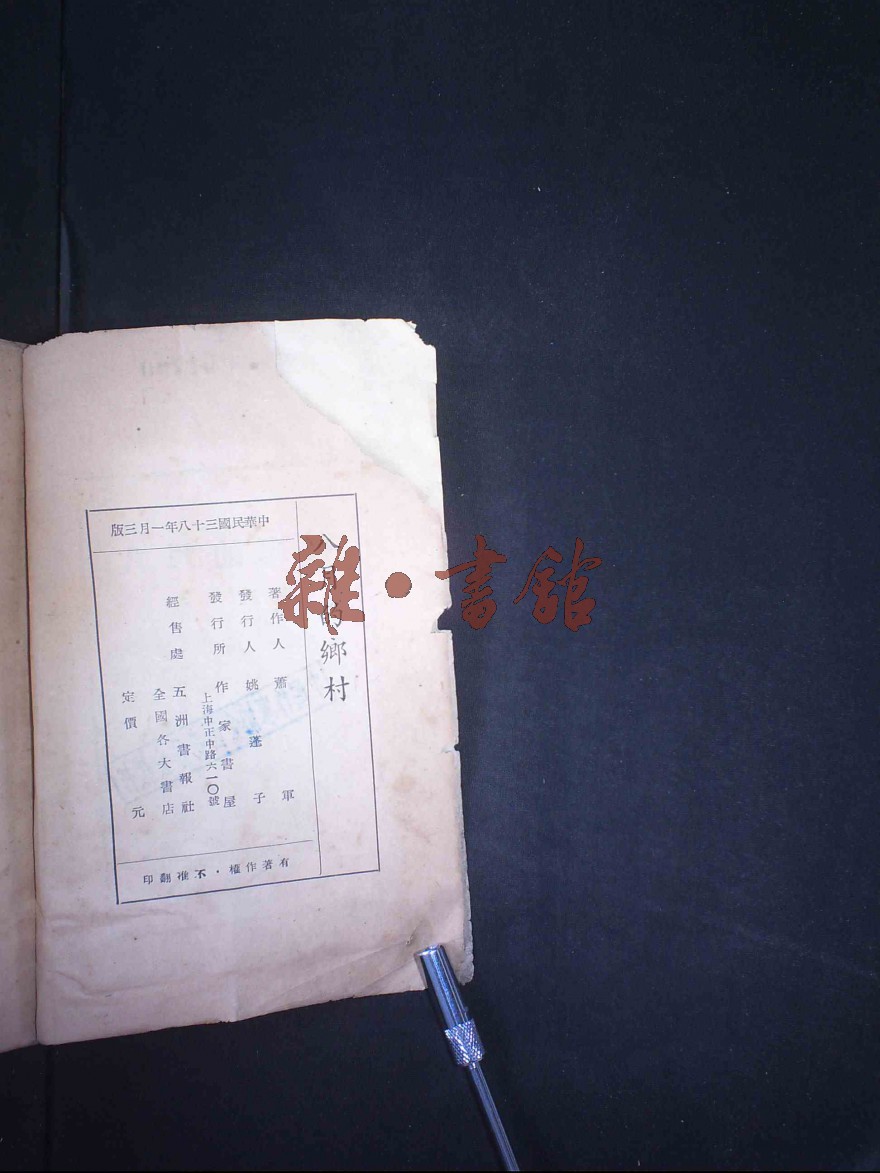 八月的鄉村
中華民國三十八年一月三版
著作人 蕭軍
發行人 姚蓬子
發行所 作家書屋
上海中正中路六一〇號
經售處 五洲書報社
全國各大書店
定價 元
有著作權・不准翻印
雜・書館